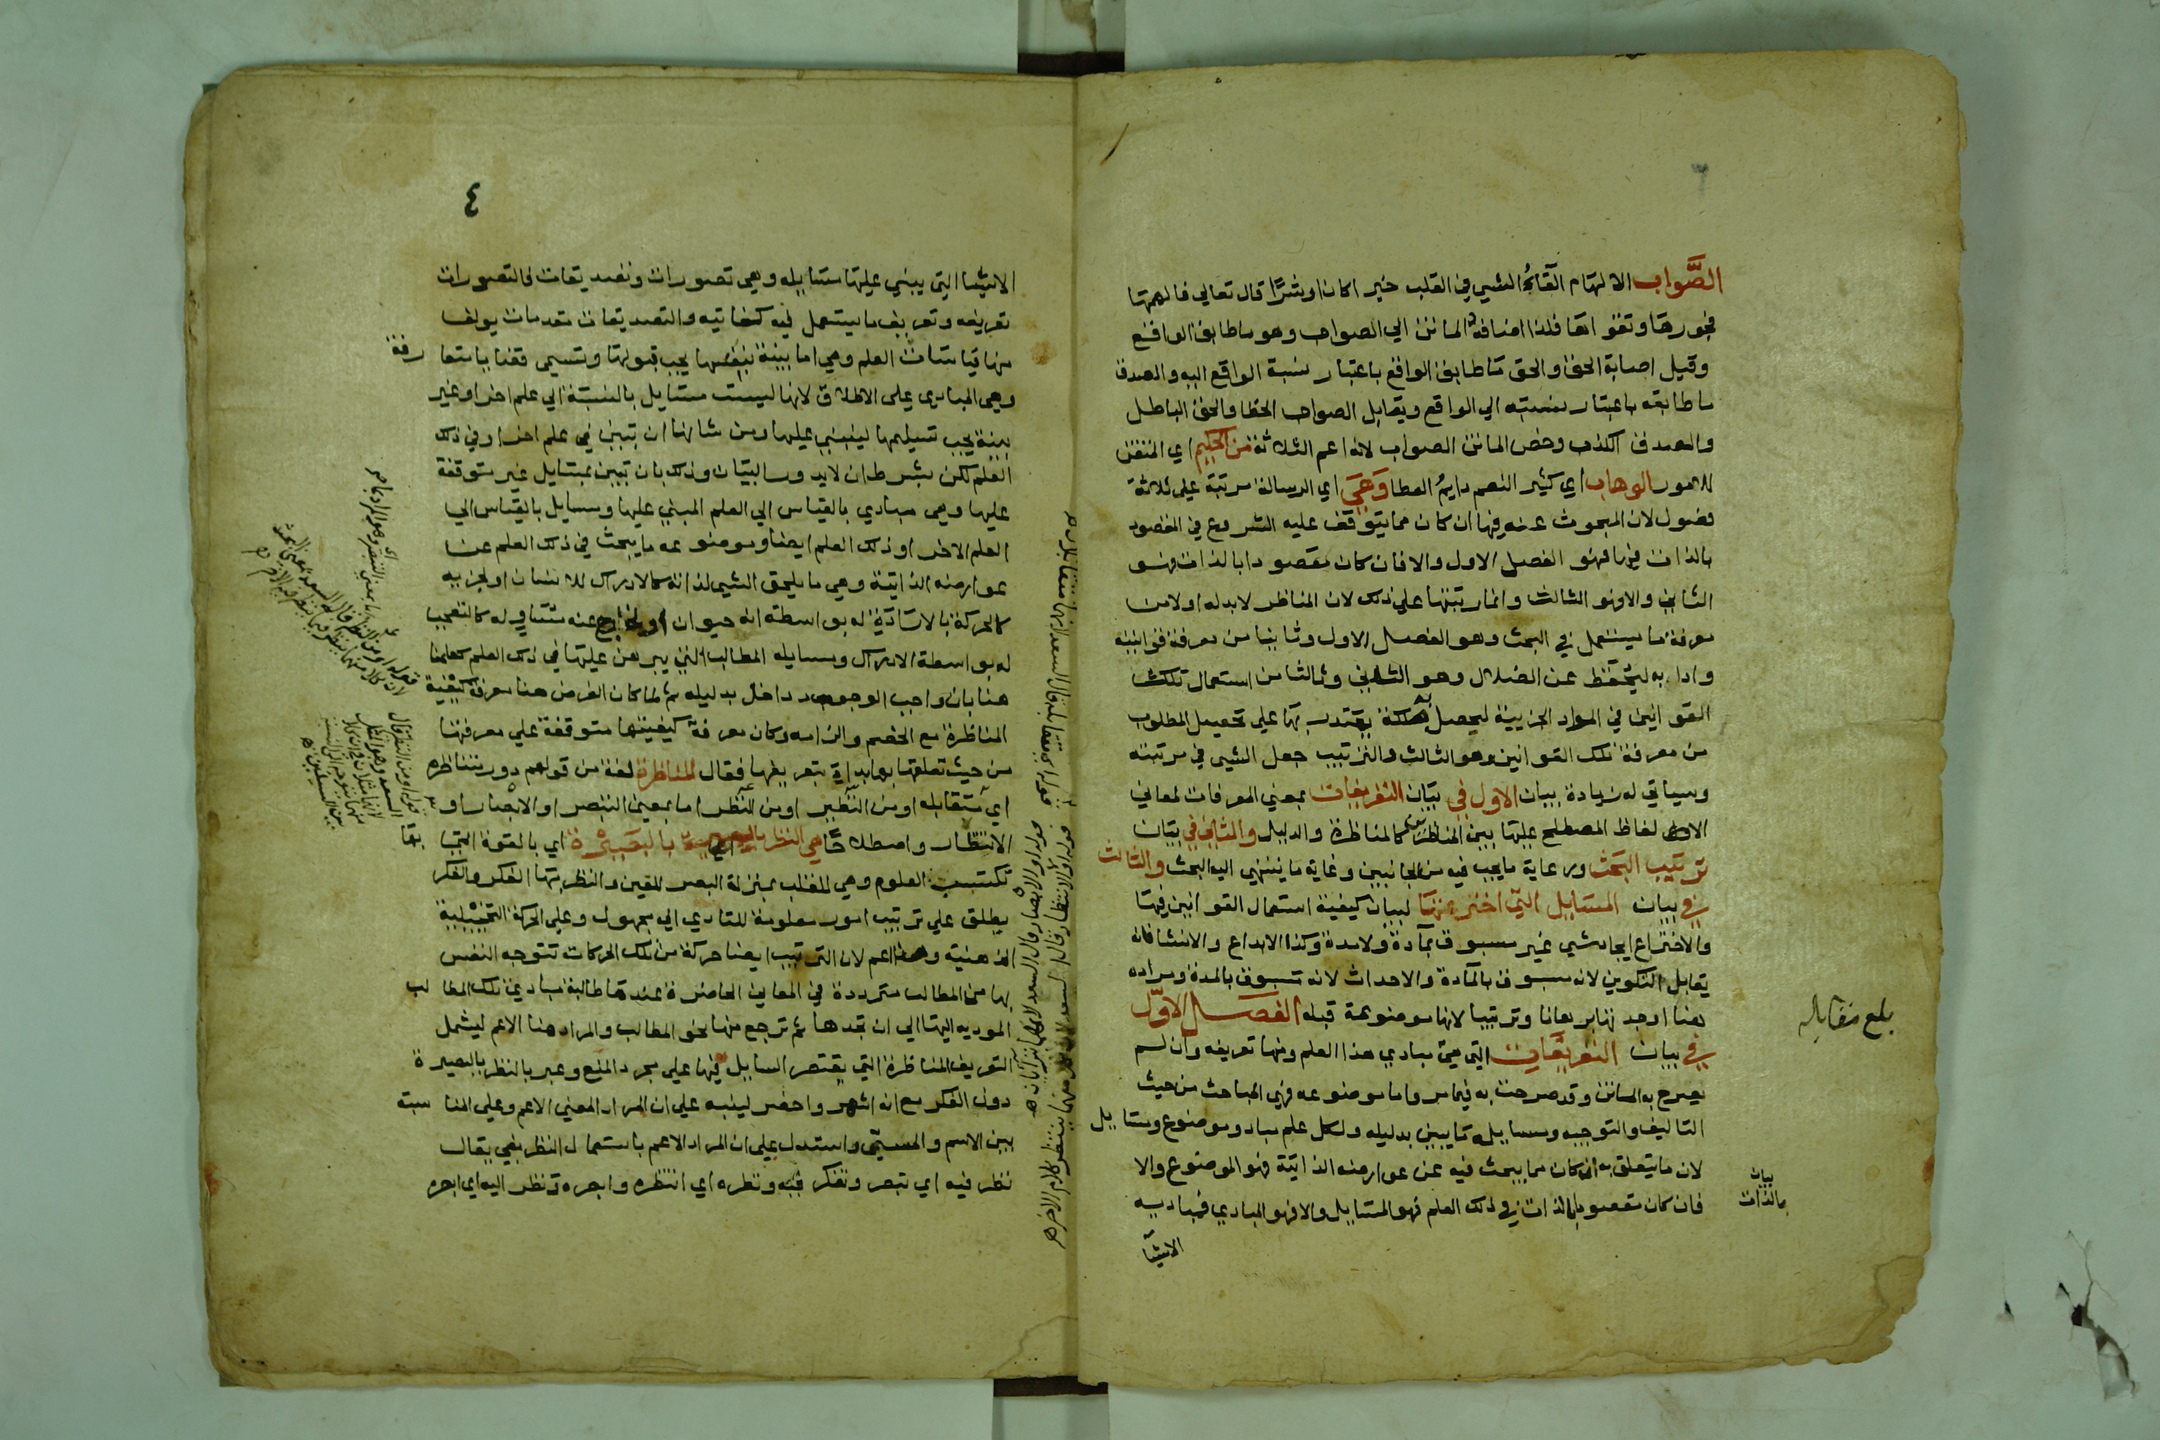 الصَّواب الالهام القاءُ الشي في القلب خيرا كان او شرّا قال تعالى فالهمها
فجورها وتقواها فلذا اضافه الماتن الي الصواب وهو ما طابق الواقع
وقيل اصابة الحق والحق ما طابق الواقع باعتبار نسبة الواقع اليه والصدق
ما طابقه باعتبار نسبته الي الواقع ويقابل الصواب الخطا والحق الباطل
والصدق الكذب وخص الماتن الصواب لانه اعم الثلاثة من الحكيم اي المتقن
للامور الوهاب اي كثير النعم دايمُ العطا وَهي اي الرسالة مرتبة على ثلاثة
فصول لان المبحوث عنه فيها ان كان مما يتوقف عليه الشروع في المقصود
بالذات فيها فهو الفصل الاول والا فان كان مقصودا بالذات فهو
الثاني والا فهو الثالث وانما رتبها على ذلك لان المناظر لا بد له اولا من
معرفة ما يستعمل في البحث وهو الفصل الاول وثانيا من معرفة قوانينه
وادابه ليحفظ عن الضلال وهو الثاني وثالثا من استعمال تلك
القوانين في المواد الجزيية ليحصل له ملكة يقتدر بها على تحصيل المطلوب
من معرفة تلك القوانين وهو الثالث والترتيب جعل الشي في مرتبته
وسياتي له زيادة بيان الاول في بيان التعريفات بمعني المعرفات لمعاني
الالفاظ المصطلح عليها بين المناظرين كالمناظرة والدليل والثاني في بيان
ترتيب البحث ورعاية ما يجب فيه من الجانبين وغاية ما ينتهي اليه البحث والثالث
في بيان المسايل التي اخترعتها لبيان كيفية استعمال القوانين فيها
والاختراع ايجاد شي غير مسبوق بمادة ولا مدة وكذا الابداع والانشا فانه
يقابل التكوين لانه مسبوق بالمادة والاحداث لانه مسبوق بالمدة ومراده
هنا اوجدتها برهانا وترتيبا لانها موضوعة قبله الفصل الاول
في بيان التعريفات التي هي مبادي هذا العلم ومنها تعريفه وان لم
يصرح به الماتن وقد صرحت به فيما مر واما موضوعه فهي المباحث من حيث
التاليف والتوجيه ومسايله ما يبين بدليله ولكل علم مباد وموضوع ومسايل
لان ما يتعلق به ان كان مما يبحث فيه عن عوارضه الذاتية فهو الموضوع والا
فان كان مقصودا بالذات في ذلك العلم فهو المسايل والا فهو المبادي فمباديه
الاشيا
بلغ مقابله
بيان
بالذات
٤
الاشيا التي يبني عليها مسايله وهي تصورات وتصديقات فالتصورات
تعريفه وتعريف ما يستعمل فيه كغايته والتصديقات مقدمات يولف
منها قياسات العلم وهي اما بينة بنفسها يجب قبولها وتسمى قضايا متعارفة
وهي المبادي على الاطلاق لانها ليست مسايل بالنسبة الي علم اخر او غير
بينة يجب تسليمها ليبني عليها ومن شانها ان تبين في علم اخر او في ذلك
العلم لكن بشرط ان لا يدور البيان وذلك بان تبين بمسايل غير متوقفة
عليها وهي مبادي بالقياس الي العلم المبني عليها ومسايل بالقياس الي
العلم الاخر او ذلك العلم ايضا وموضوعه ما يبحث في ذلك العلم عن
عوارضه الذاتية وهي ما يلحق الشي لذاته كالادراك للانسان او لجزيه
كالحركة بالارادة له بواسطة انه حيوان او لخارج عنه مساوي له كالتعجب
له بواسطة الادراك ومسايله المطالب التي يبرهن عليها في ذلك العلم كعلمنا
هنا بان واجب الوجود داخل بدليله ثم لما كان الغرض هنا معرفة كيفية
المناظرة مع الخصم والزامه وكان معرفة كيفيتها متوقفة على معرفتها
من حيث تعلقها بها بدا بتعريفها فقال المناظرة لغة من قولهم دور متناظره
اي متقابله او من النظير او من النظر اما بمعني التبصر او الابصار او
الانتظار واصطلاحا هي النظر بالبصيرة اي بالقوة التي بها
تكتسب العلوم وهي للقلب بمنزلة البصر للعين والنظر بها الفكر والفكر
يطلق على ترتيب امور معلومة للتادي الي مجهول وعلى الحركة التخييلية
الذهنية وهذا اعم لان الترتيب ايضا حركة من تلك الحركات تتوجه النفس
بها من المطالب مترددة في المعاني الحاضرة عندها طالبة مبادي تلك المطالب
المودية اليها الي ان تجدها ثم ترجع منها نحو المطالب والمراد هنا الاعم ليشمل
التعريف المناظرة التي يقتصر السايل فيها على مجرد المنع وعبر بالنظر بالبصيرة
دون الفكر مع انه اشهر واخصر لينبه على ان المراد المعني الاعم وعلى المناسبة
بين الاسم والمسمي واستدل على ان المراد الاعم باستعمال النظر بفي يقال
نظر فيه اي تبصر وتفكر فيه ونظره اي انتظره وابصره ونظر اليه اي ابصره